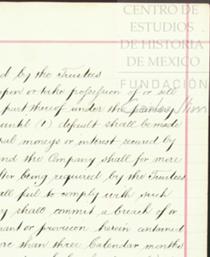 CENTRO DE
ESTUDIOS
DE HISTORIA
DE MEXICO
FUNDACIÓN
d by the Trustees
upon or take possession of or sell
part thereof under the
until (1) default shall be made
al moneys or interest secured by
nd the Company shall for more
fter being required by the Trustees
all fail to comply with such
y shall commit a breach of or
nant or provision herein contained
ore than three Calendar months